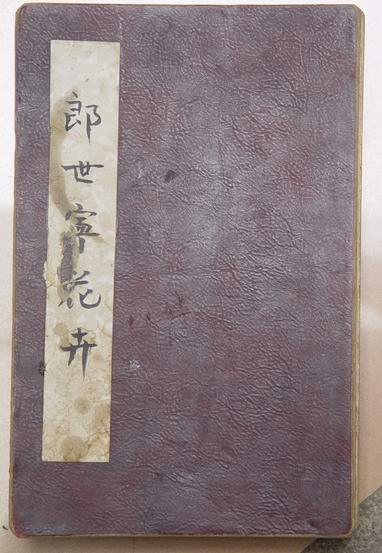 郎世寜花卉